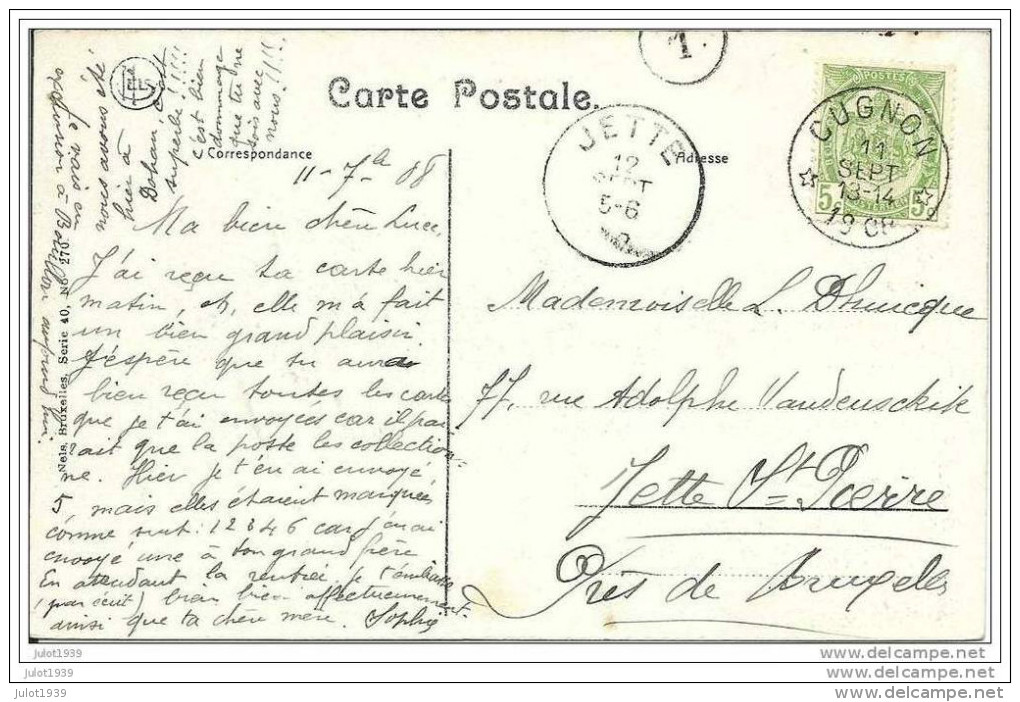 Carte Postale.
Correspondance
Adresse
1
JETTE
12
SEPT
5-6
CUGNON
11
SEPT
13-14
1908
POSTES
5c
5c
11-7b 08
Ma bien chère Luce,
J'ai reçu ta carte hier
matin, et, elle m'a fait
un bien grand plaisir.
J'espère que tu auras
bien reçu toutes les cartes
que je t'ai envoyées car il pa
rait que la poste les collection=
ne. Hier je t'en ai envoyé
5, mais elles étaient marquées
comme suit: 1 2 3 4 6 car j'en ai
envoyé une à ton grand frère
En attendant la rentrée, je t'embrasse
(par écrit) bien bien affectueusement
ainsi que ta chère mère. Sophie
Je vais en
excursion à Bouillon aujourd'hui.
nous avons été
hier à
Dohan, c'était
superbe!!!!
c'est bien
dommage
que tu ne
sois avec
nous!!!!
Nels, Bruxelles, Serie 40, No 270
Mademoiselle L. Dhuicque
77, rue Adolphe Vandenschrik
Jette St Pierre
Près de Bruxelles
julot1939
julot1939
julot1939
www.delcampe.net
www.delcampe.net
www.delcampe.net